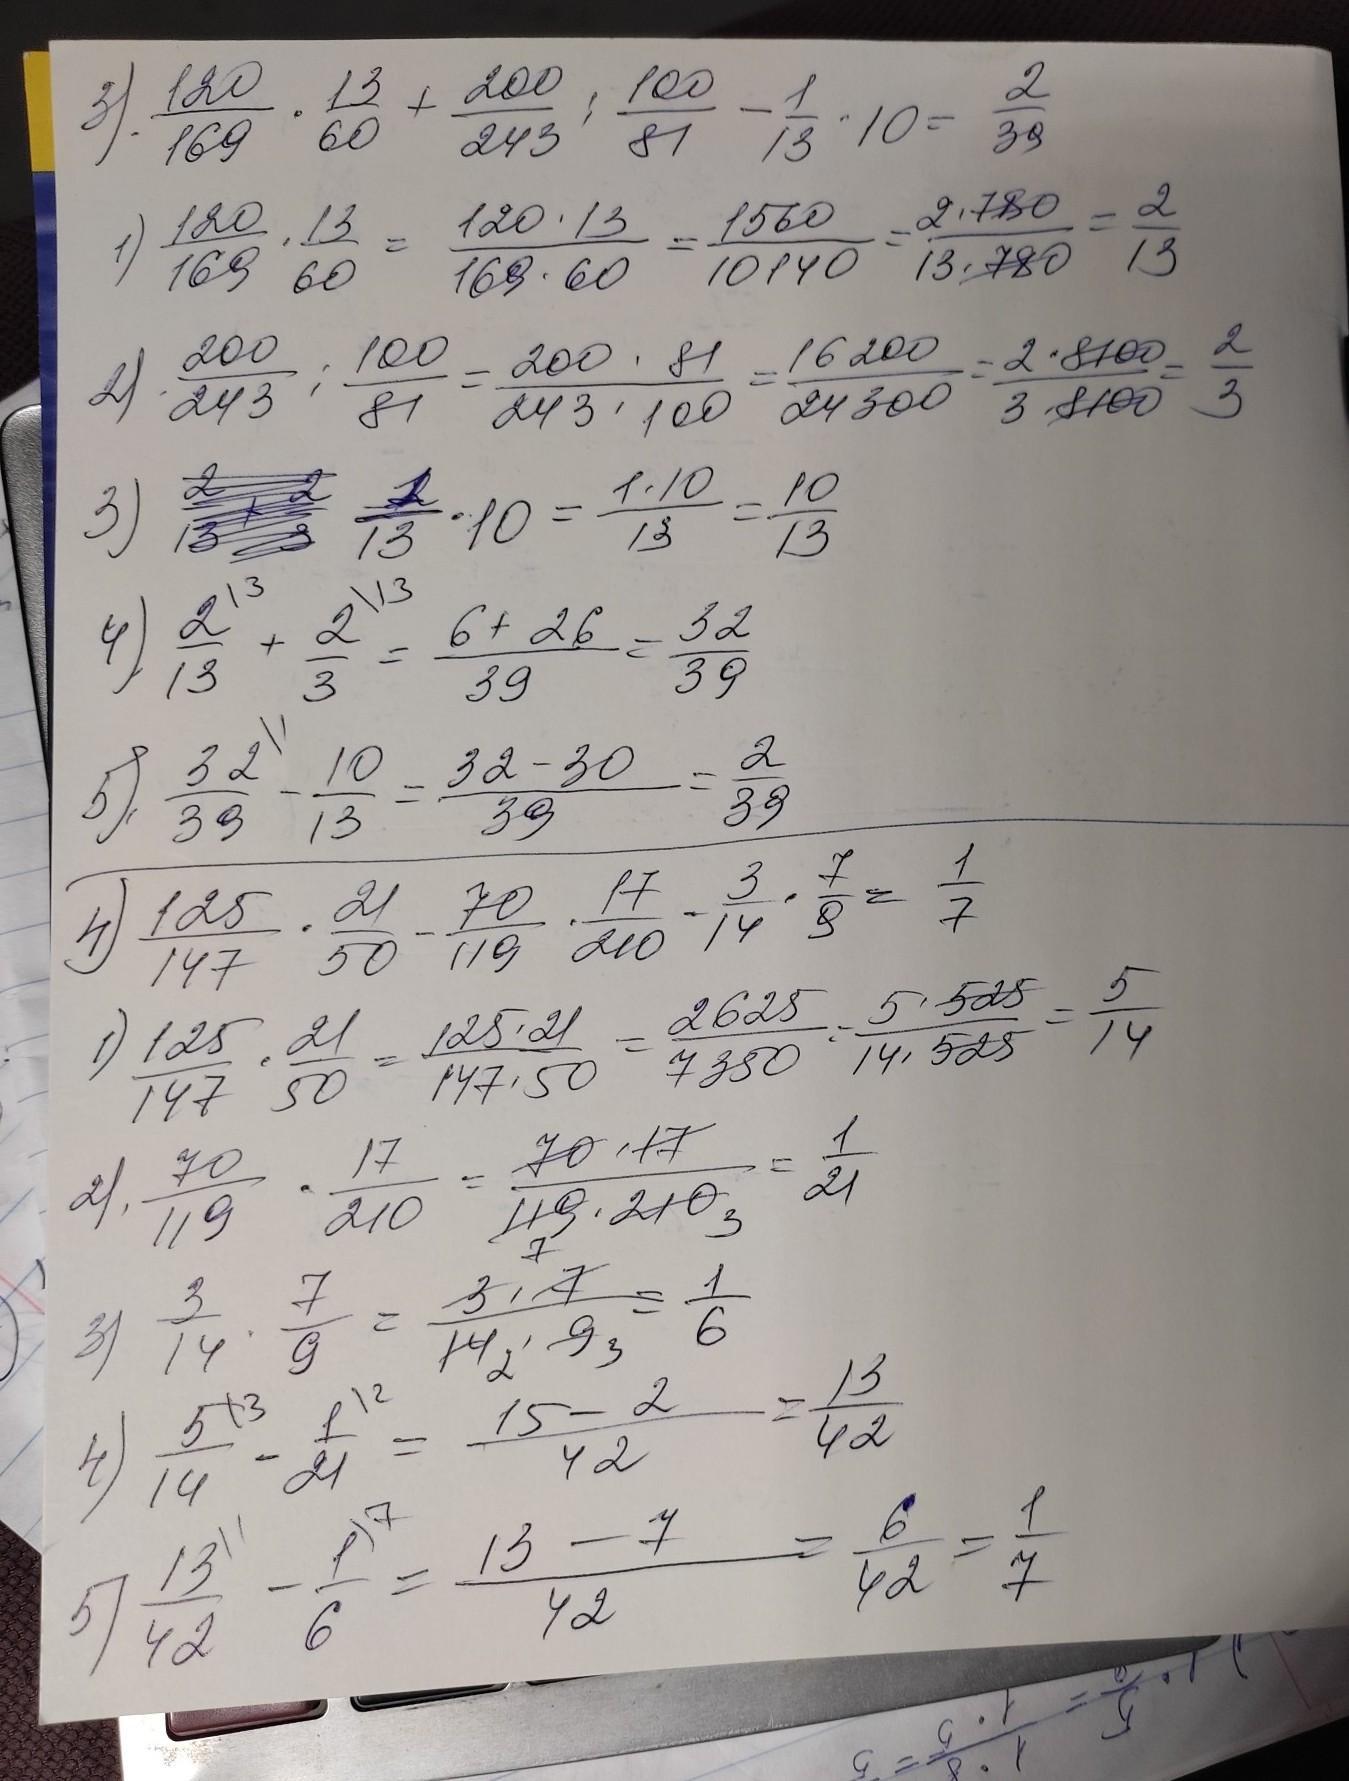 3). 120/169 · 13/60 + 200/243 : 100/81 - 1/13 · 10 = 2/39
1) 120/169 · 13/60 = 120·13/169·60 = 1560/10140 = 2·780/13·780 = 2/13
2) 200/243 : 100/81 = 200·81/243·100 = 16200/24300 = 2·8100/3·8100 = 2/3
3) 1/13 · 10 = 1·10/13 = 10/13
4) 2\3/13 + 2\13/3 = 6+26/39 = 32/39
5). 32\1/39 - 10/13 = 32-30/39 = 2/39
4) 125/147 · 21/50 - 70/119 · 17/210 - 3/14 · 7/9 = 1/7
1) 125/147 · 21/50 = 125·21/147·50 = 2625/7350 = 5·525/14·525 = 5/14
2). 70/119 · 17/210 = 70·17/119 7·210 3 = 1/21
3) 3/14 · 7/9 = 3·7/14 2·9 3 = 1/6
4) 5\3/14 - 1\2/21 = 15-2/42 = 13/42
5) 13\1/42 - 1\7/6 = 13-7/42 = 6/42 = 1/7